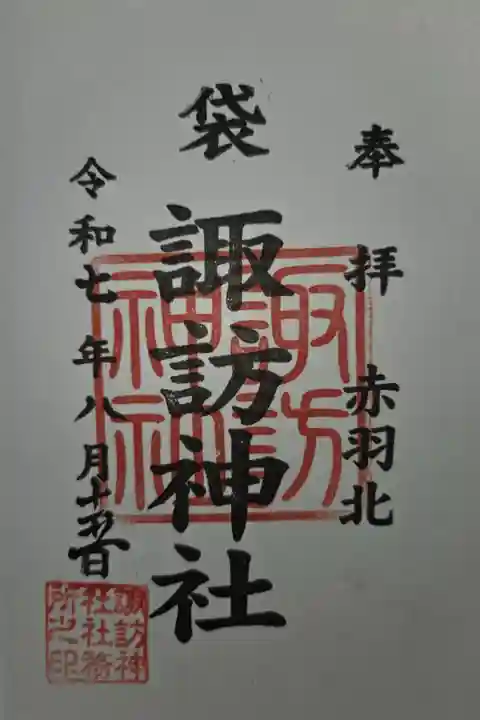 奉拝 赤羽北
袋 諏訪神社
令和七年八月十五日
諏訪神社
諏訪神社社務所之印